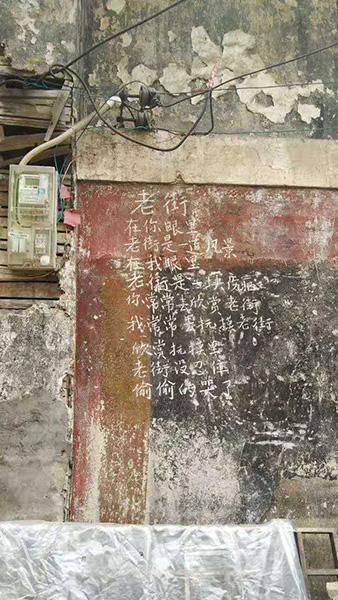 老街
在你眼里
老街是道风景
在我眼里
老街是废墟
你常常去欣赏老街
我常常去抚摸老街
欣赏抚摸里
老街没忍住
偷偷的哭了